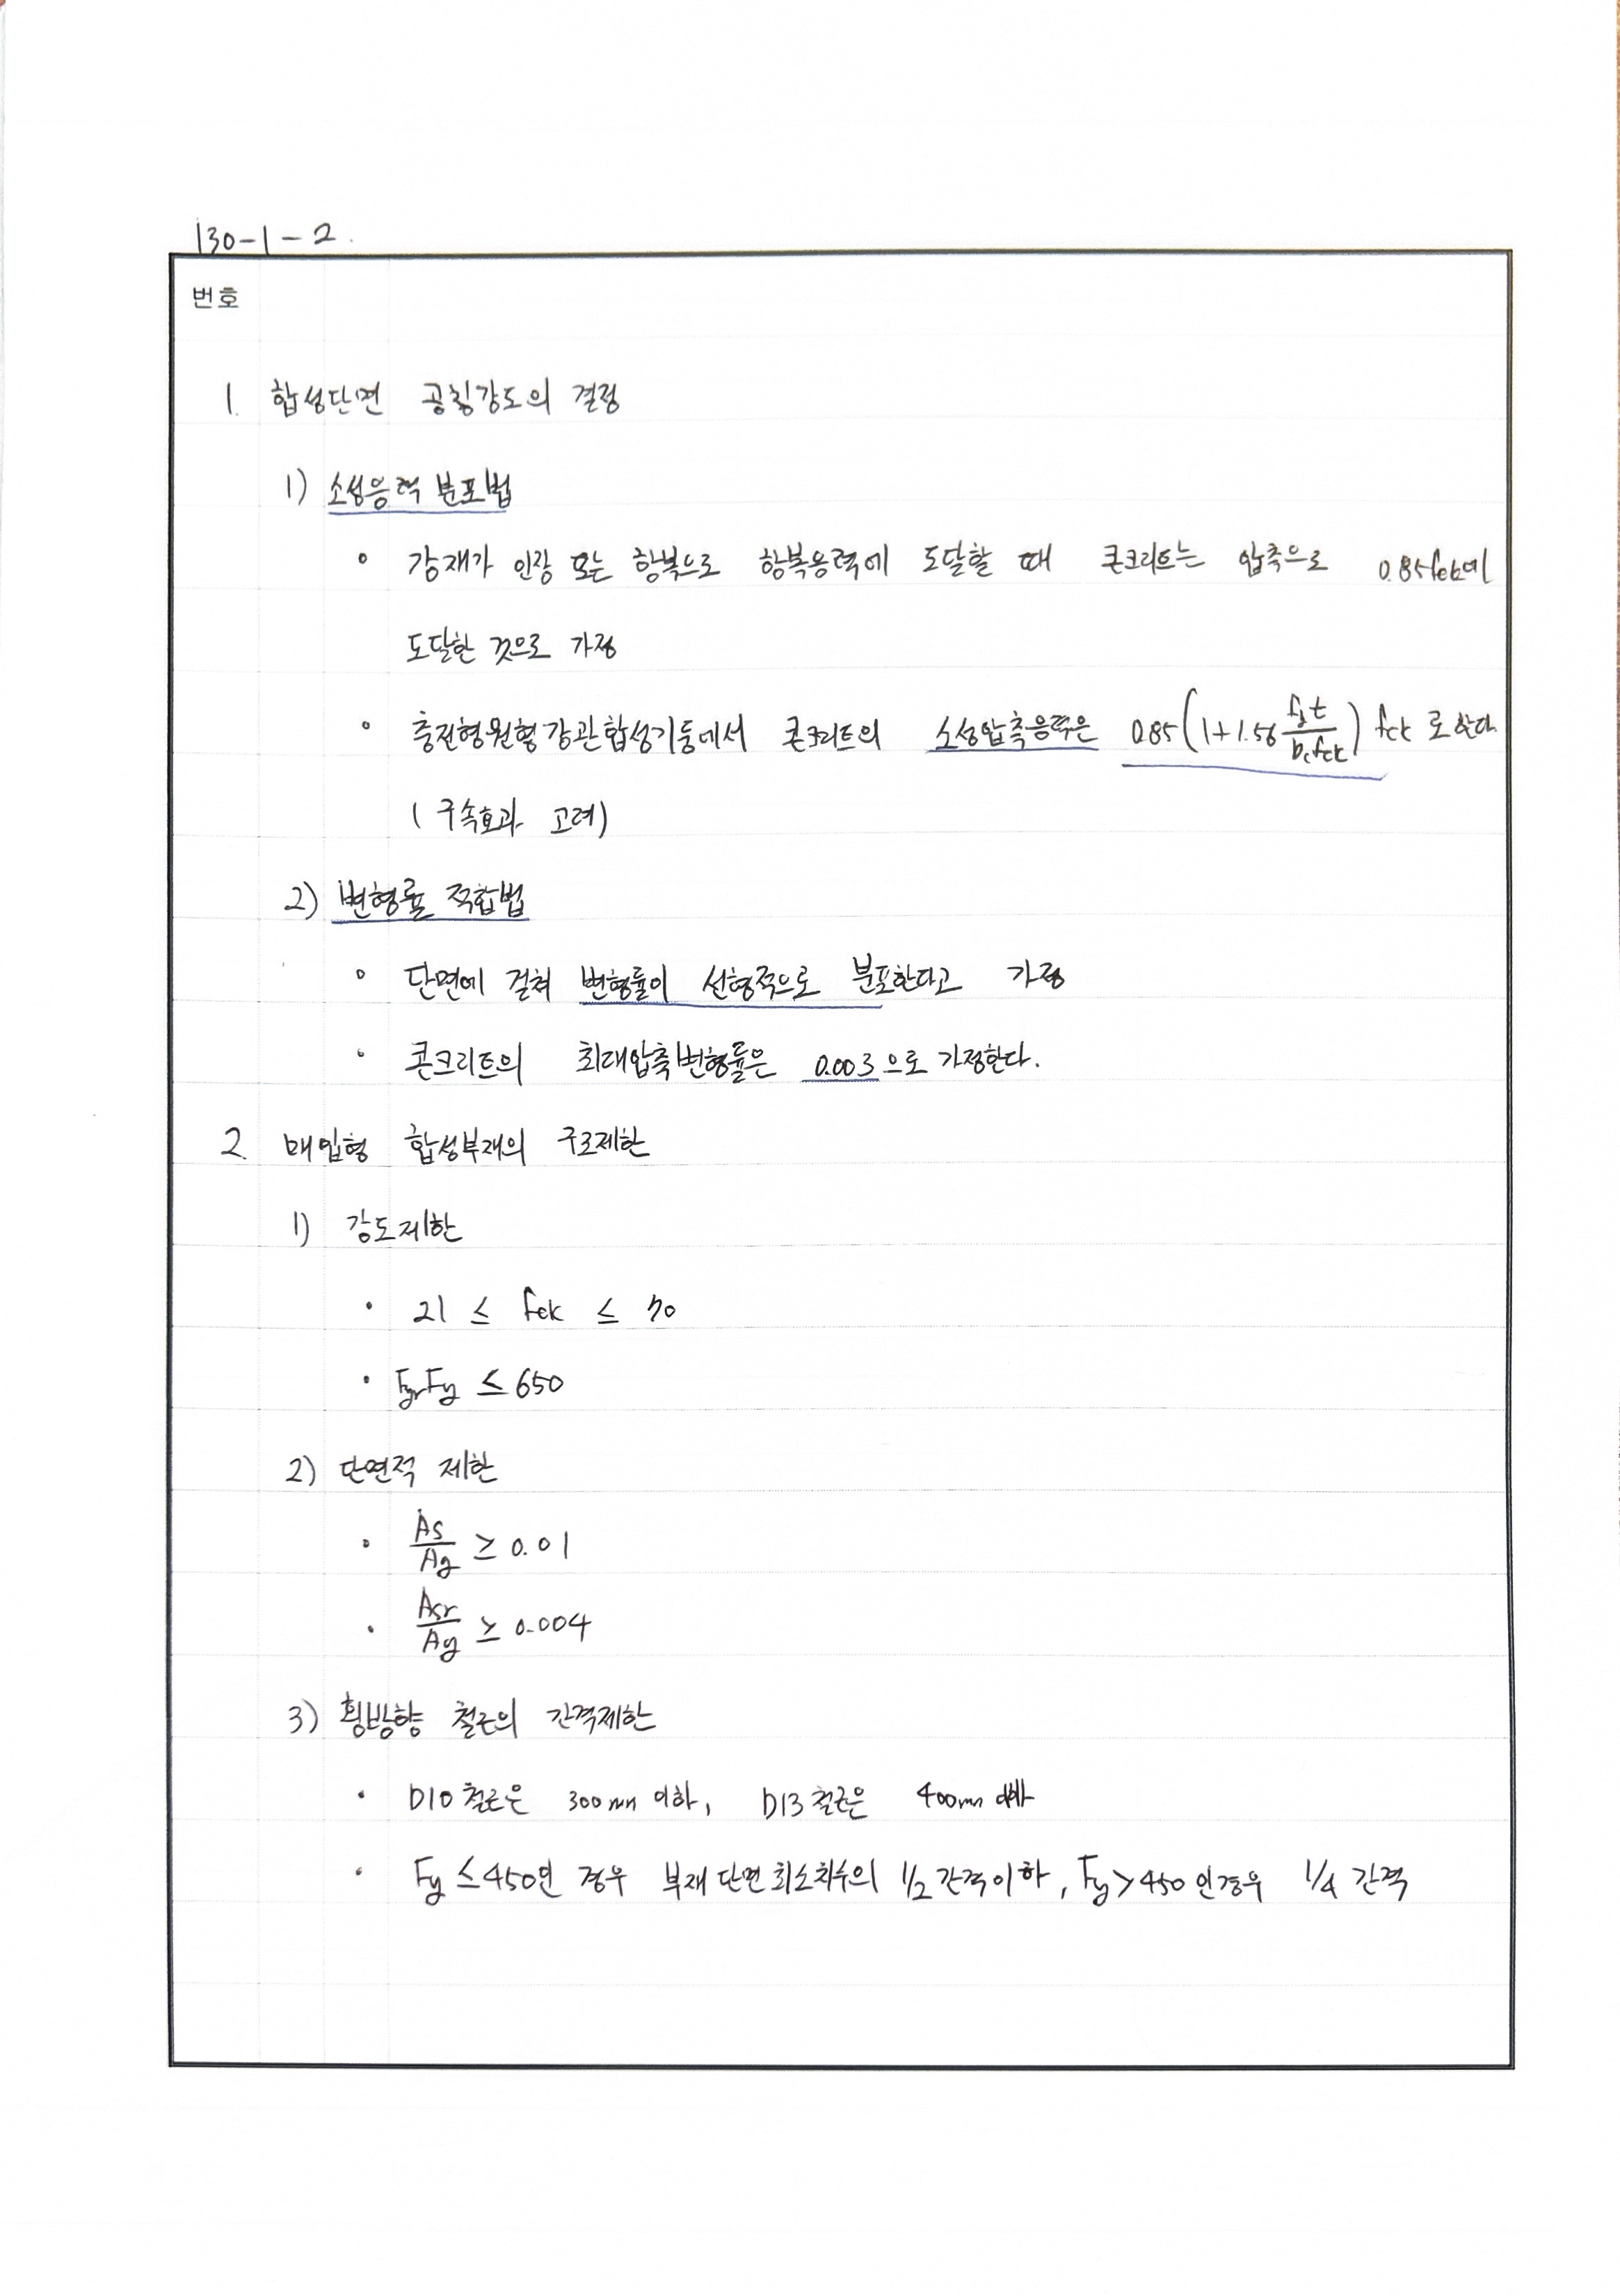 130-1-2.
번호
1. 합성단면 공칭강도의 결정
1) 소성응력 분포법
∘ 강재가 인장 또는 항복으로 항복응력에 도달할 때 콘크리트는 압축으로 0.85fck에
도달한 것으로 가정
∘ 충전형원형강관합성기둥에서 콘크리트의 소성압축응력은 0.85(1+1.56 fyt/Dcfck) fck 로 한다
(구속효과 고려)
2) 변형률 적합법
∘ 단면에 걸쳐 변형률이 선형적으로 분포한다고 가정
∘ 콘크리트의 최대압축변형률은 0.003으로 가정한다.
2. 매입형 합성부재의 구조제한
1) 강도제한
• 21 ≤ fck ≤ 70
• Fyr, Fy ≤ 650
2) 단면적 제한
• As/Ag ≥ 0.01
• Asr/Ag ≥ 0.004
3) 횡방향 철근의 간격제한
• D10 철근은 300mm 이하, D13 철근은 400mm 이하
• Fy ≤ 450인 경우 부재 단면 최소치수의 1/2 간격이하, Fy > 450 인경우 1/4 간격